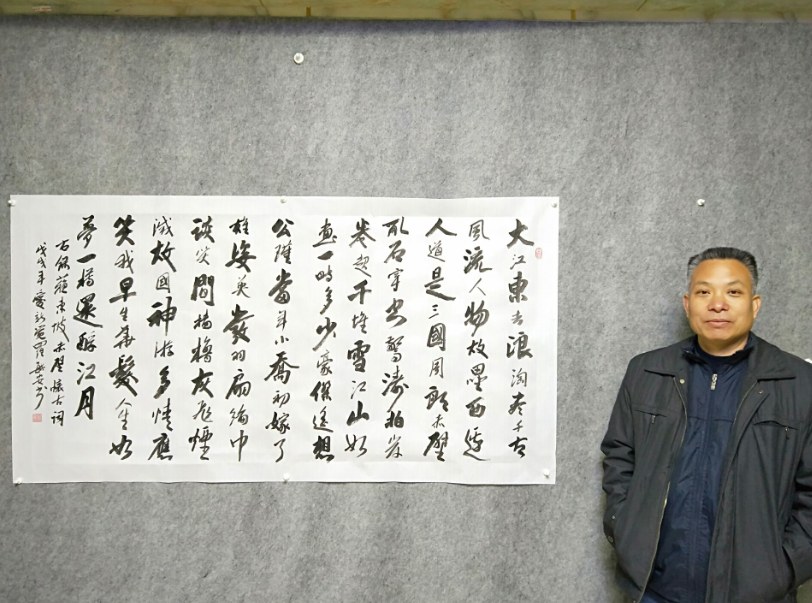 大江東去浪淘尽千古
風流人物故壘西邊
人道是三國周郎赤壁
乱石穿空驚濤拍岸
卷起千堆雪江山如
画一時多少豪傑遙想
公瑾當年小喬初嫁了
雄姿英發羽扇綸巾
談笑間檣櫓灰飛煙
滅故國神游多情應
笑我早生華髮人生如
夢一樽還酹江月
右録蘇東坡赤壁懷古詞
戊戌年